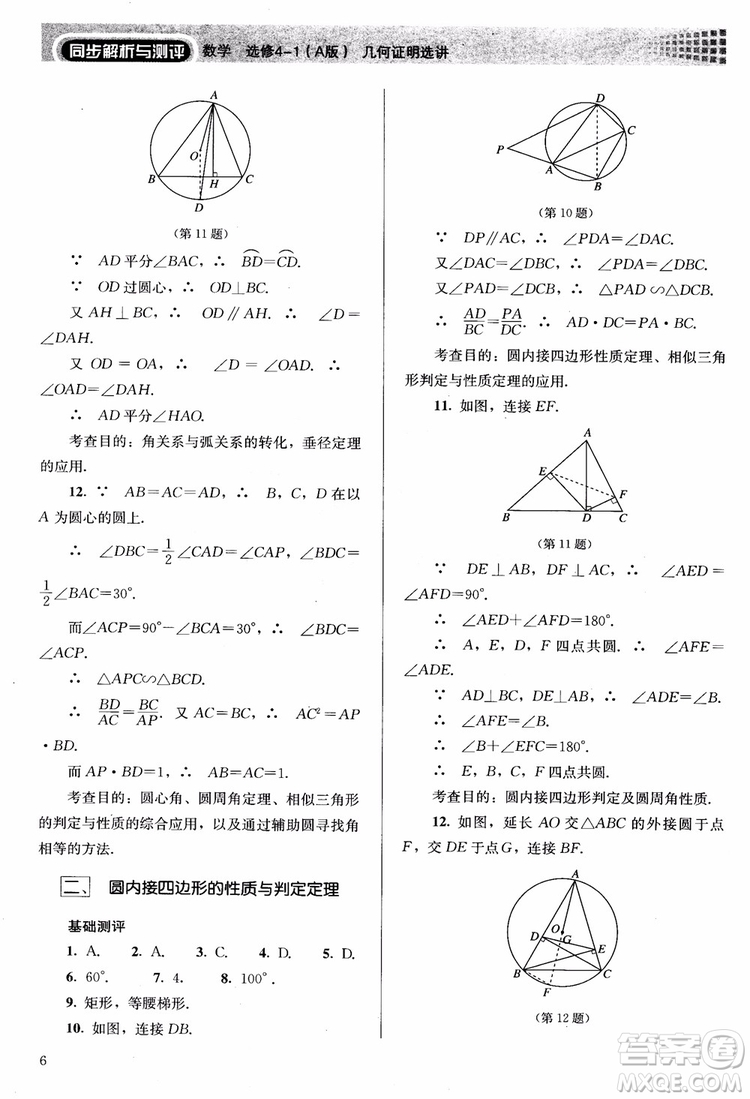 同步解析与测评 数学 选修4-1(A版) 几何证明选讲
A
O
B
H
C
D
(第11题)
∵ AD平分∠BAC,∴ BD⌒=CD⌒.
∵ OD过圆心,∴ OD⊥BC.
又AH⊥BC,∴ OD∥AH. ∴ ∠D=
∠DAH.
又OD=OA,∴ ∠D=∠OAD. ∴
∠OAD=∠DAH.
∴ AD平分∠HAO.
考查目的:角关系与弧关系的转化,垂径定理
的应用.
12. ∵ AB=AC=AD,∴ B,C,D在以
A为圆心的圆上.
∴ ∠DBC=1/2∠CAD=∠CAP,∠BCD=
1/2∠BAC=30°.
而∠ACP=90°-∠BCA=30°,∴ ∠BCD=
∠ACP.
∴ △APC∽△BCD.
∴ BD/AC=BC/AP. 又AC=BC,∴ AC²=AP
·BD.
而AP·BD=1,∴ AB=AC=1.
考查目的:圆心角、圆周角定理、相似三角形
的判定与性质的综合应用,以及通过辅助圆寻找角
相等的方法.
二、 圆内接四边形的性质与判定定理
基础测评
1. A. 2. A. 3. C. 4. D. 5. D.
6. 60°. 7. 4. 8. 100°.
9. 矩形,等腰梯形.
10. 如图,连接DB.
6
D
C
P
A
B
(第10题)
∵ DP∥AC,∴ ∠PDA=∠DAC.
又∠DAC=∠DBC,∴ ∠PDA=∠DBC.
又∠PAD=∠DCB,∴ △PAD∽△DCB.
∴ AD/BC=PA/DC. ∴ AD·DC=PA·BC.
考查目的:圆内接四边形性质定理、相似三角
形判定与性质定理的应用.
11. 如图,连接EF.
A
E
F
B
D
C
(第11题)
∵ DE⊥AB,DF⊥AC,∴ ∠AED=
∠AFD=90°.
∴ ∠AED+∠AFD=180°.
∴ A,E,D,F四点共圆. ∴ ∠AFE=
∠ADE.
∵ AD⊥BC,DE⊥AB,∴ ∠ADE=∠B.
∴ ∠AFE=∠B.
∴ ∠B+∠EFC=180°.
∴ B,E,F,C四点共圆.
考查目的:圆内接四边形判定及圆周角性质.
12. 如图,延长AO交△ABC的外接圆于点
F,交DE于点G,连接BF.
A
O
D
G
E
B
C
F
(第12题)
答案圈